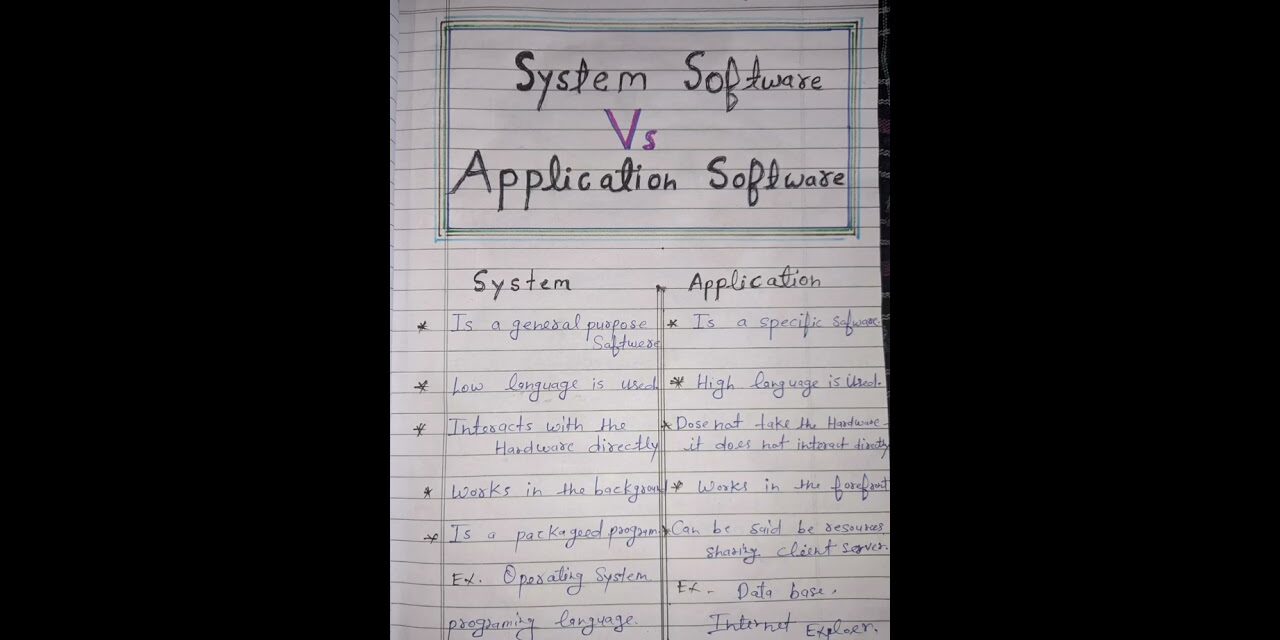 System Software
Vs
Application Software
System
* Is a general purpose
Saftwere
* Low language is used
* Interacts with the
Hardware directly
* Works in the background
* Is a packageed program
Ex. Operating System
programing language.
Application
* Is a specific Safware.
* High language is used.
* Dose not take the Hardware-
it does not interact directly
* Works in the forefront
* Can be said be resources
sharing client server.
Ex- Data base,
Internet Exploer.